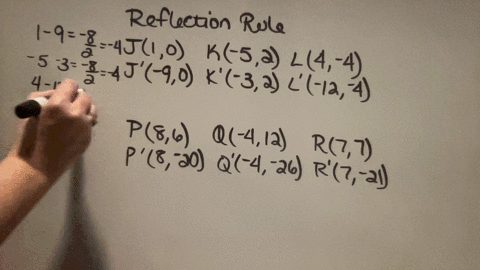 Reflection Rule
1 - 9 = -8/2 = -4 J(1,0) K(-5,2) L(4,-4)
-5 -3 = -8/2 = -4 J'(-9,0) K'(-3,2) L'(-12,-4)
4 -
P(8,6) Q(-4,12) R(7,7)
P'(8,-20) Q'(-4,-26) R'(7,-21)